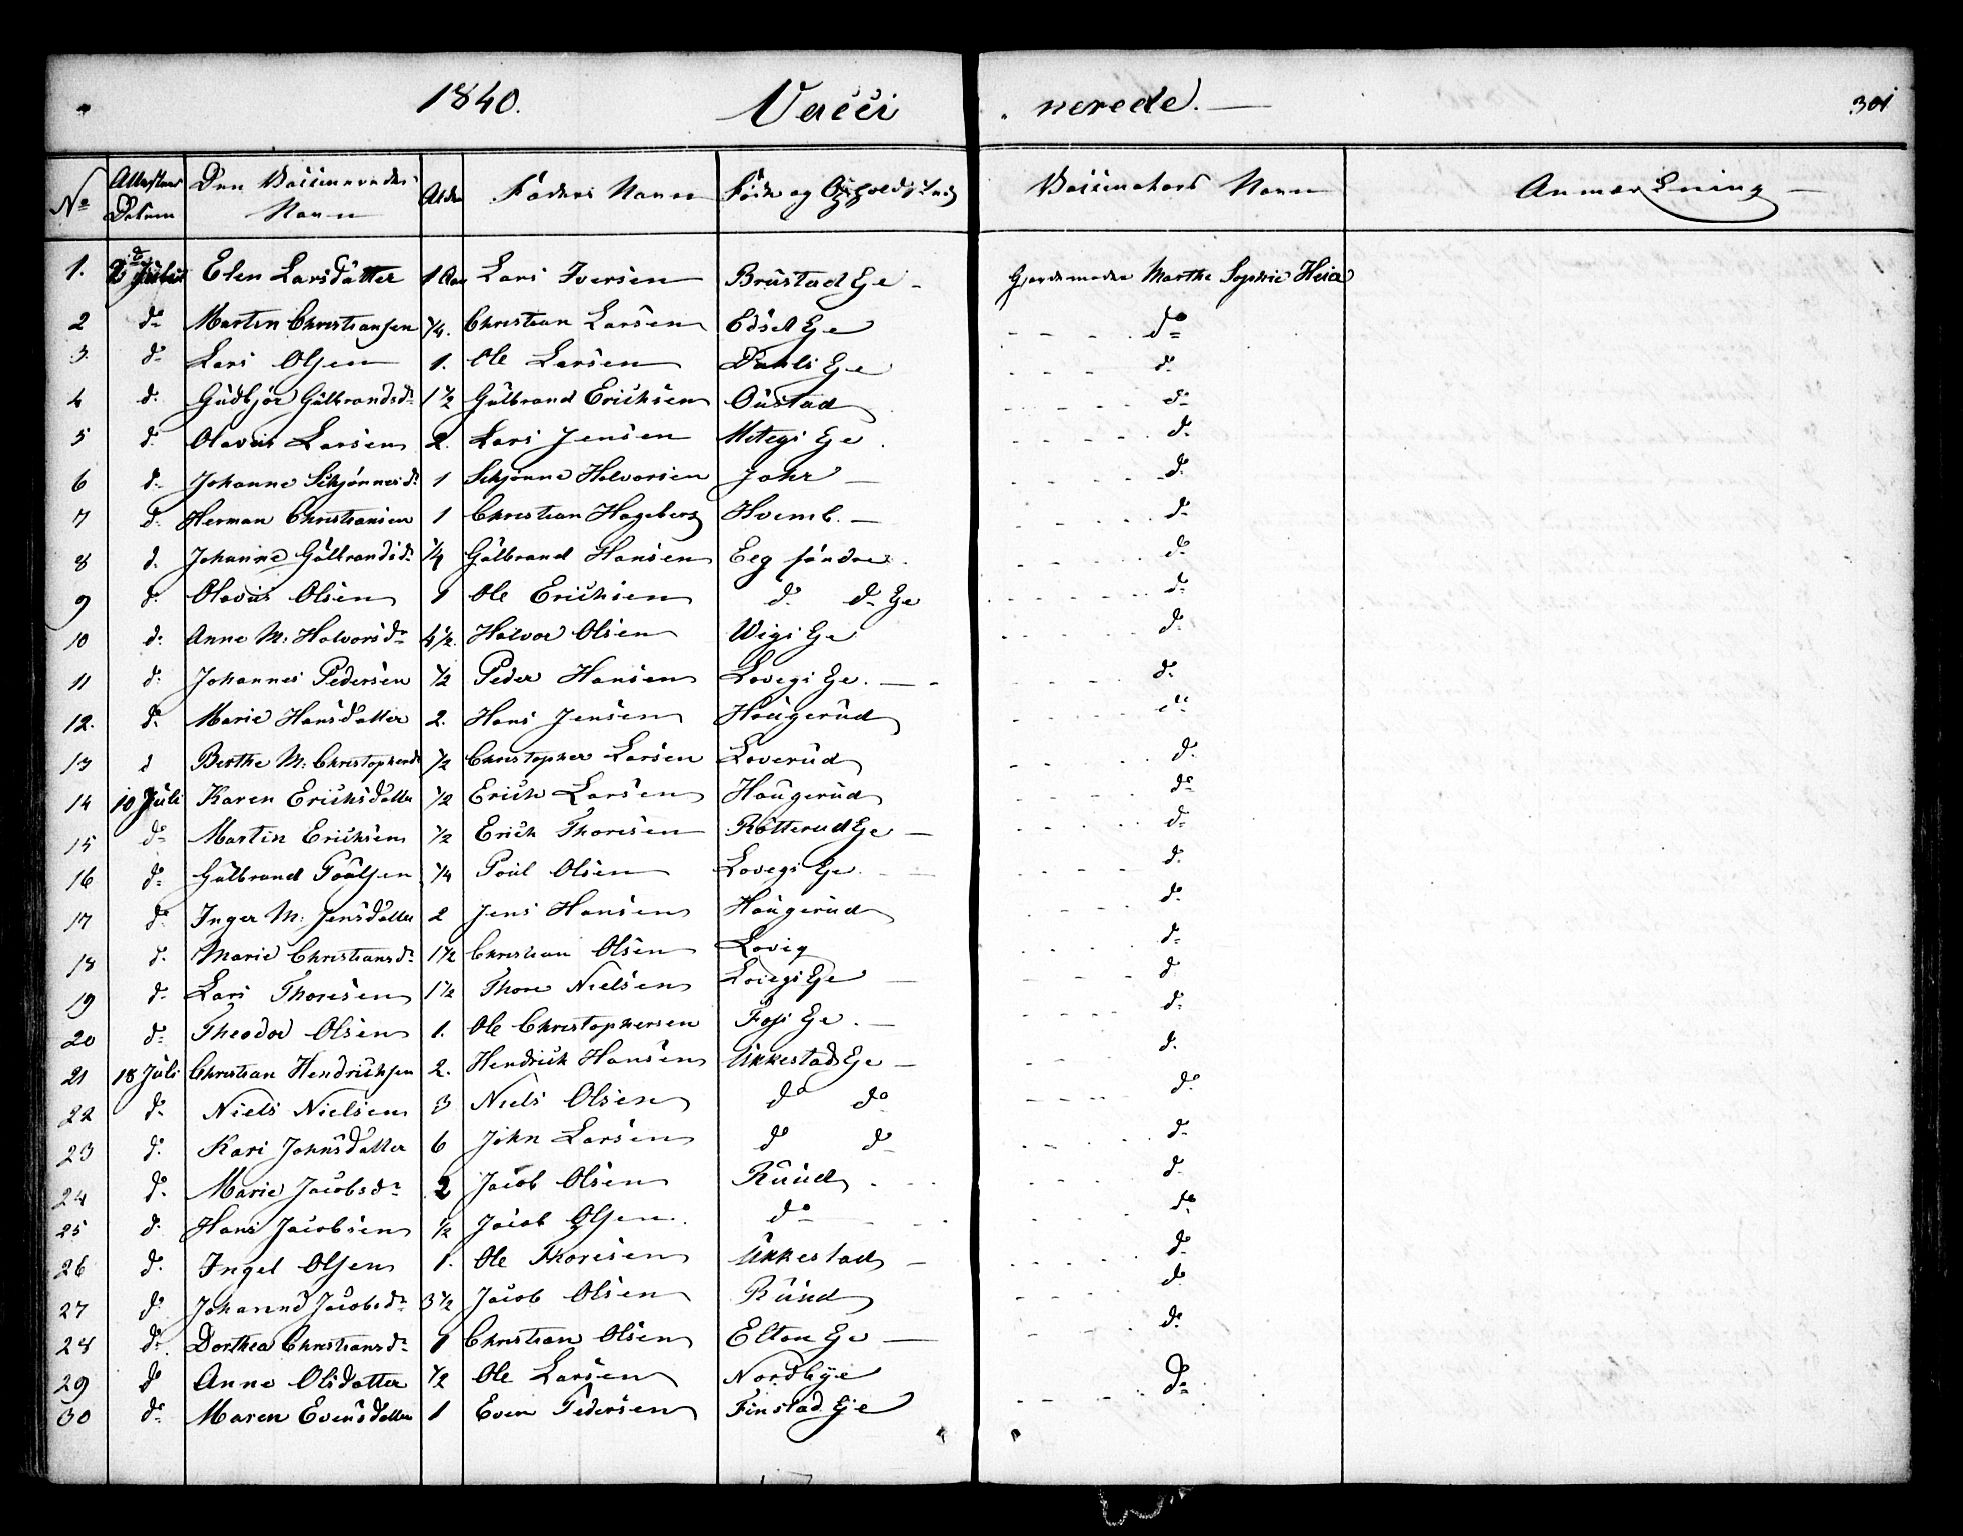 1840. Vacci nerede. 301
No Attestens Datum Den Vaccineredes Navn Alder Faders Navn Føde og Opholds Sted Vaccinators Navn Anmærkning
1. Juli Elen Larsdatter 1 Aar Lars Iversen Brüstad Eje Gjordemoder Marthe Sophie Heia
2 do Martin Christiansen 1/4. Christian Larsen Edset Eje do
3. do Lars Olsen 1. Ole Larsen Dahls Eje do
4 do Gudbjør Gülbrandsdr 1 1/2 Gülbrand Erichsen Oüstad do
5 do Olavus Larsen 2. Lars Jensen Eje do
6 do Johanne Schjønnesdr 1 Schjønne Halvorsen Jahr do
7 do Herman Christiansen 1 Christian Hageberg Hvemb. do
8 do Johanne Gülbrandsdr 1/4 Gülbrand Hansen Eeg søndre do
9 do Olavus Olsen 1 Ole Erichsen do do Eje do
10 do Anne M: Halvorsdr 4 1/2. Halvor Olsen Wigs Eje do
11 do Johannes Pedersen 1/2 Peder Hansen Lovegs Eje. do
12. do Marie Hansdatter 2. Hans Jensen Haügerüd do
13 d Berthe M: Christophersd 1/2 Christopher Larsen Loverüd do
14 10 Jüli Karen Erichsdatter 1/2 Erich Larsen Haügerüd do
15 do Martin Erichsen 1/2 Erich Thoresen Rotterud Eje do
16 do Gülbrand Poülsen 1/4 Poül Olsen Lovegs Eje. do
17 do Inger M: Jensdatter 2 Jens Hansen Haügerüd do
18 do Marie Christiansdr 1 1/2 Christian Olsen Lovig do
19 do Lars Thoresen 1 1/2 Thore Nielsen Eje do
20 do Theodor Olsen 1. Ole Christophersen Foss Eje. do
21 18 Jüli Christian Hendrichsen 2. Hendrich Hansen Ükkestads Eje do
22 do Niels Nielsen 3 Niels Olsen do do do
23 do Kari Johnsdatter 6 John Larsen do do do
24 do Marie Jacobsdr 2 Jacob Olsen Rüüd do
25 do Hans Jacobsen 1/2 Jacob Olsen. do do
26 do Ingel Olsen 1. Ole Thoresen Ükkestad do
27 do Johanne Jacobsdr 3 1/2 Jacob Olsen Rüüd do
28 do Dorthea Christiansdr 1 Christian Olsen Elton Eje do
29 do Anne Olsdatter 1/2 Ole Larsen Nordbye do
30 do Maren Evensdatter 1 Even Pedersen Finstad Eje